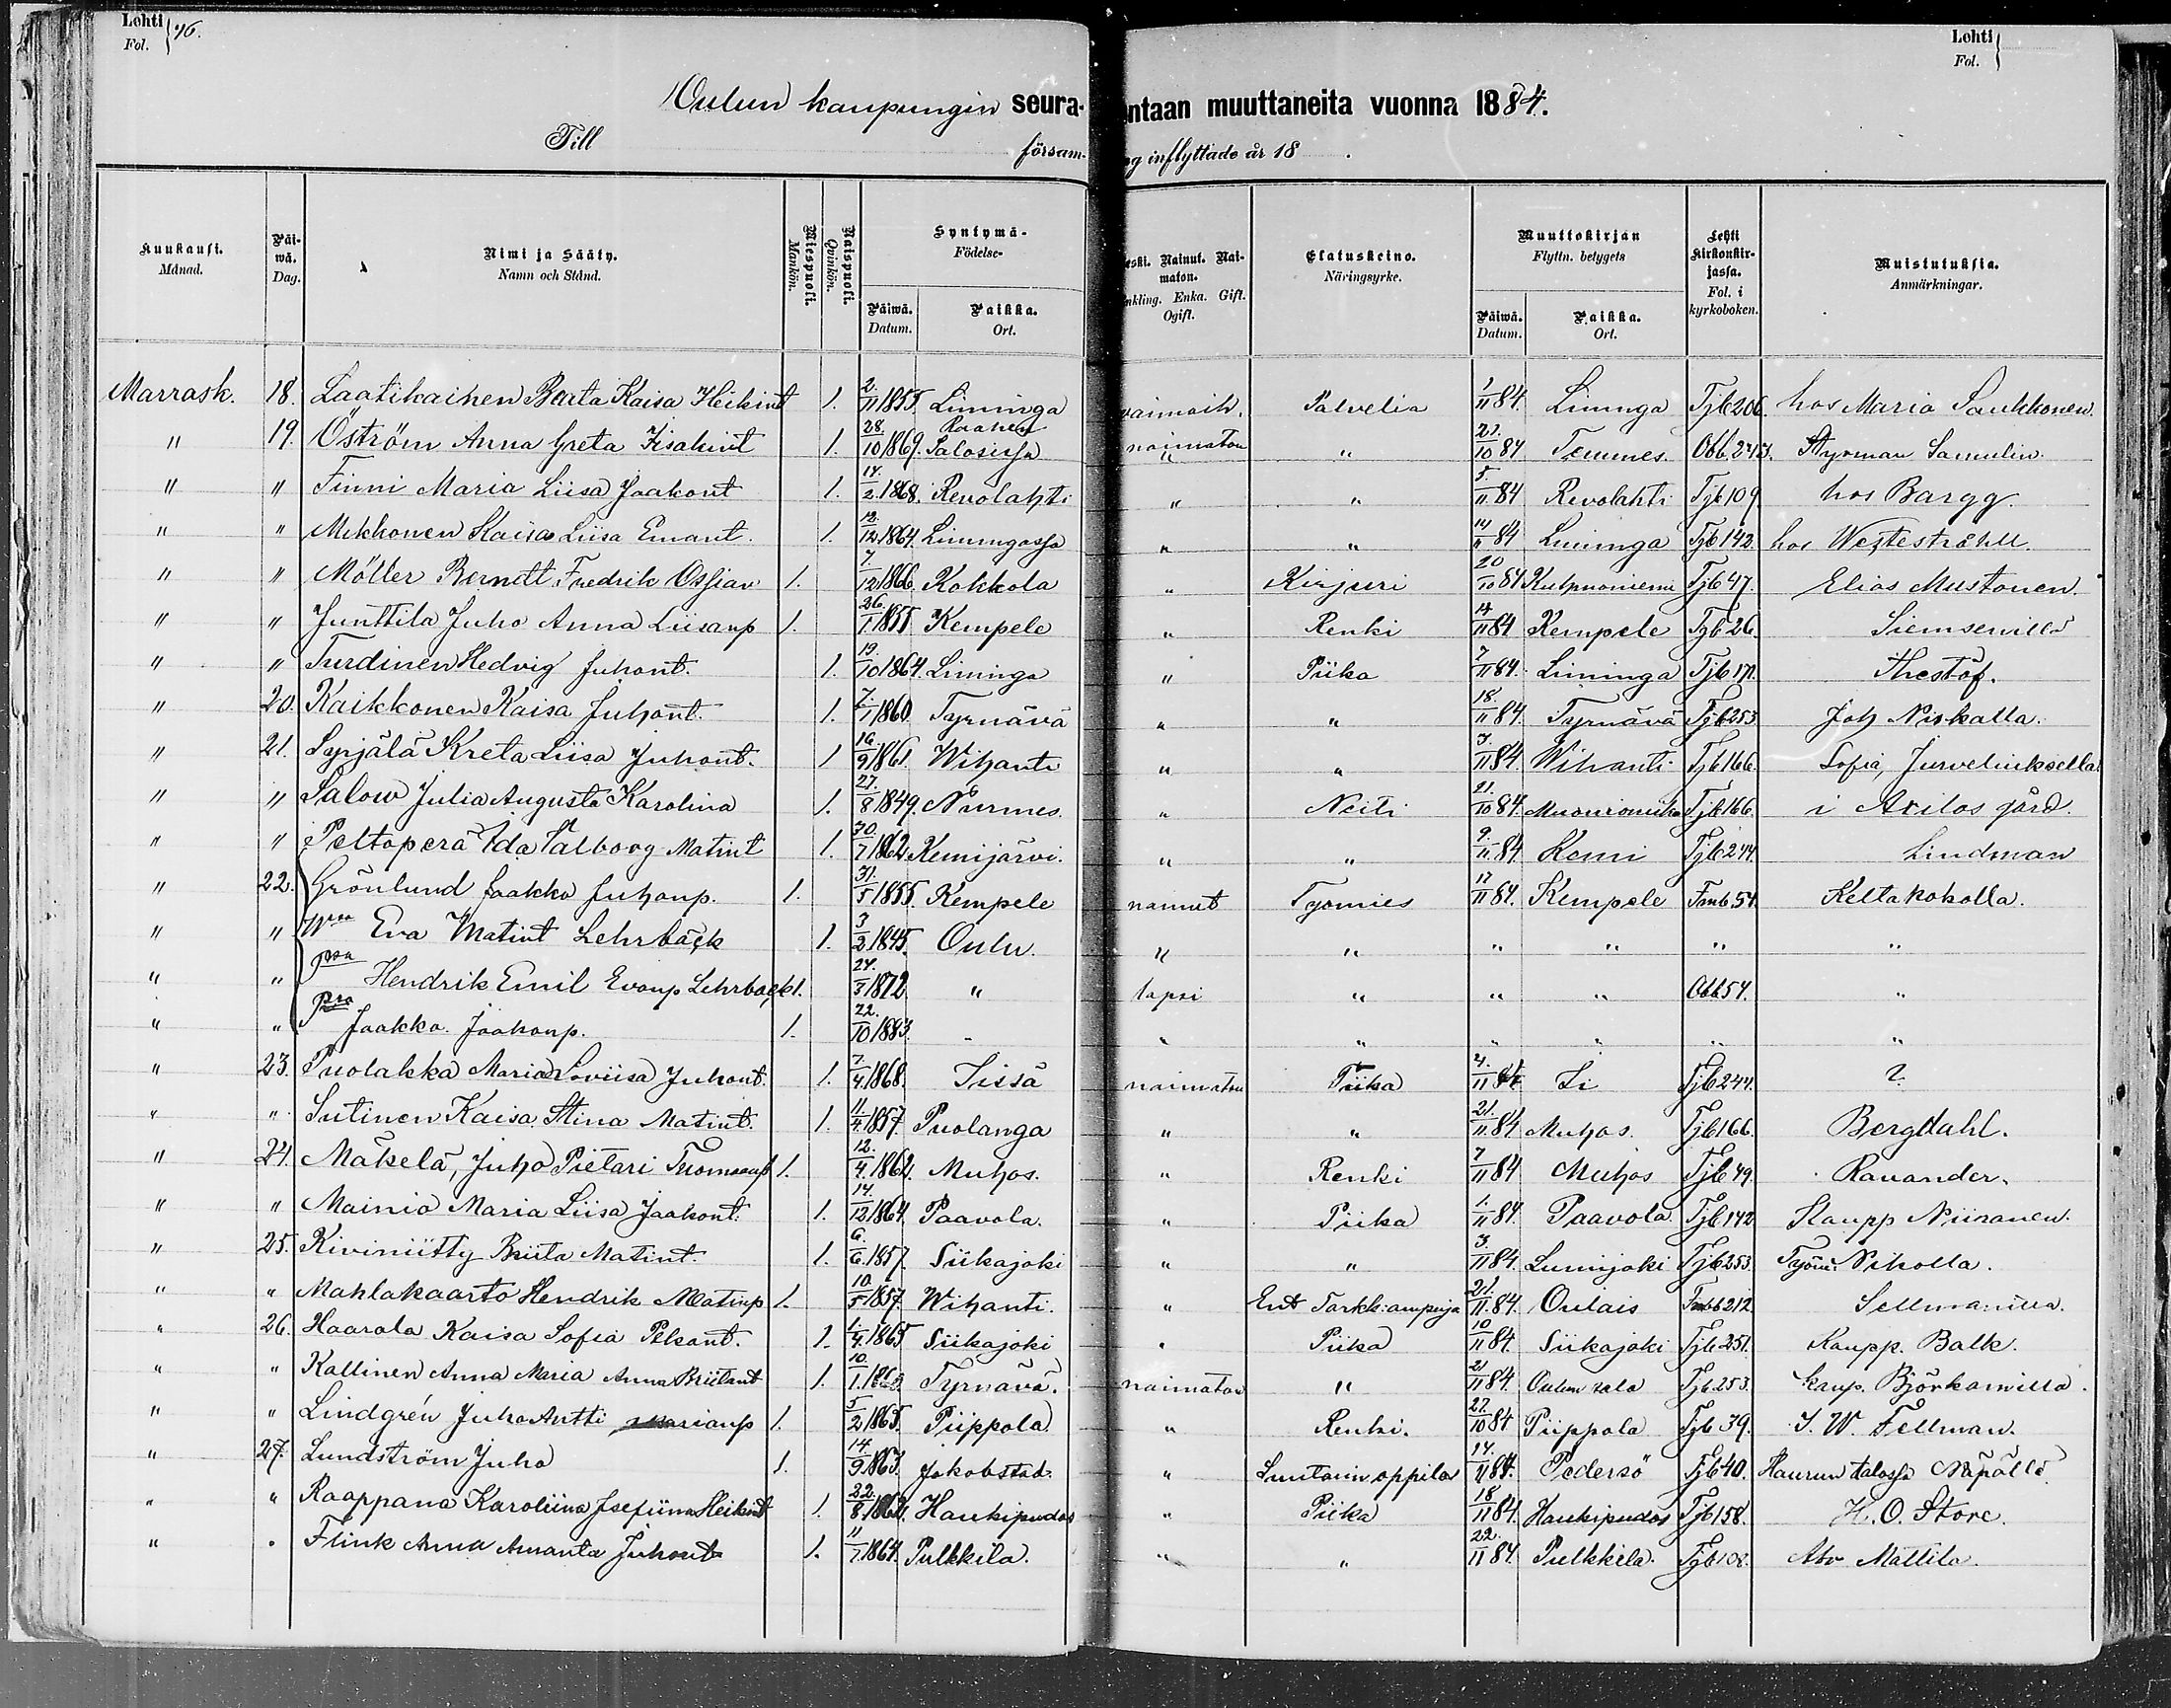 Lehti Fol. } 76.
Lehti Fol. }
Oulun kaupungin seura- ntaan muuttaneita vuonna 1884.
Till försam- g inflyttade år 18 .
Kuukausi. Månad. Päi-wä. Dag. Nimi ja Sääty. Namn och Stånd. Miespuoli. Mankön. Naispuoli. Qvinkön. Syntymä- Födelse- Päiwä. Datum. Paikka. Ort. eski. Nainut. Nai-maton. nkling. Enka. Gift. Ogift. Elatuskeino. Näringsyrke. Muuttokirjan Flyttn. betygets Päiwä. Datum. Paikka. Ort. Lehti kirkonkir-jassa. Fol. i kyrkoboken. Muistutuksia. Anmärkningar.
Marrask. 18. Laatikainen Beata Kaisa Heikint 1. 2/11 1855. Liminga Palvelia 1/11 84. Liminga Tjb 206. hos Maria Saukkonen.
" 19. Öström Anna Greta Iisakint 1. 28/10 1869. Raahen Salosissa naimaton " 21/10 84 Temmes. Obb. 243. Styrman Samulin.
" " Finni Maria Liisa Jaakont 1. 14/2 1868. Revolahti " " 5/11 84 Revolahti Tjb 109 hos Bargg.
" " Mikkonen Kaisa Liisa Emant. 1. 12/12 1864. Limingassa " " 14/11 84 Liminga Tjb 142. hos Westeståhll.
" " Möller Berndt Fredrik Ossian 1. 7/12 1866. Kokkola " Kirjuri 20/10 84 Tjb 47. Elias Mustonen.
" " Junttila Juho Anna Liisanp 1. 26/1 1855 Kempele " Renki 14/11 84 Kempele Tjb 26. Siemsenilla
" " Turdinen Hedvig Juhont. 1. 19/10 1864. Liminga " Piika 7/11 84. Liminga Tjb 171.
" 20. Kaikkonen Kaisa Juhont. 1. 7/1 1860 Tyrnävä " " 18/11 84. Tyrnävä Tjb 253. Joh Niskalla.
" 21. Syrjälä Kreta Liisa Juhont. 1 16/9 1861. Wihanti " " 3/11 84. Wihanti Tjb 166. Sofia, Jurvelinksella
" " Salow Julia Augusta Karolina 1. 27/8 1849. Nurmes. " Neiti 21/10 84. Muonionniska Tjb 166. i Axilos gård.
" " Peltoperä Ida Valborg Matint 1. 30/7 1862. Kemijärvi. " " 9/11 84 Kemi Tjb 244. Lindman
" 22. Grönlund Jaakko Juhonp. 1. 31/5 1855. Kempele nainut Työmies 17/11 84. Kempele Fmb 54. Keltakoholla.
" " Wmo Eva Matint Lehrbäck 1. 3/2 1845. Oulu. " " " " " "
" " psa Hendrik Emil Evanp Lehrbäck 1. 24/3 1872 " lapsi " " " Obb 54. "
" " Psa Jaakko Jaakonp. 1. 22/10 1883. " " " " " " "
" 23. Puolakka Maria Loviisa Juhont. 1. 7/4 1868. Iissä naimaton Piika 4/11 84 Ii Tjb 244. ?
" " Sutinen Kaisa Stina Matint. 1. 11/4 1857. Puolanga " " 21/11 84 Muhos. Tjb 166. Bergdahl.
" 24. Mäkelä, Juho Pietari Thomasp 1. 12/4 1862. Muhos. " Renki 7/11 84 Muhos Tjb 49. Ravander.
" " Mainio Maria Liisa Jaakont. 1. 14/12 1864. Paavola. " Piika 1/11 84. Paavola Tjb 142 Kaupp Niiranen.
" 25. Kiviniitty Briita Matint. 1. 6/6 1857. Siikajoki " " 3/11 84. Lumijoki Tjb 253. Työm. Nikolla.
" " Mahlakaarto Hendrik Matinp 1. 10/5 1857. Wihanti. " Ent Tarkk:ampuja 21/11 84. Oulais Fmb 212. Sellmanilla.
" 26. Haarala Kaisa Sofia Pekant. 1. 1/4 1865 Siikajoki " Piika 10/11 84. Siikajoki Tjb 251. Kaupp. Balk.
" " Kallinen Anna Maria Anna Briitant 1. 10/1 Tyrnävä. naimaton " 21/11 84. Oulunsalo Tjb 253. kaup. Björkamilla.
" " Lindgrén Juho Antti Marianp 1. 5/2 1865. Piippola " Renki. 27/10 84 Piippola Tjb 39. J. W. Fellman.
" 27. Lundström Juho 1. 14/9 1863. Jakobstad. " Suutarin oppilas 14/11 84. Pedersö Tjb 40. Haurun talossa
" " Raappana Karoliina Josefiina Heikint 1. 22/8 1862. Haukipudas " Piika 18/11 84. Haukipudas Tjb 158. H. O. Store.
" " Flink Anna Amanta Juhont 1. 11/7 1864. Pulkkila. " " 22/11 84. Pulkkila. Tjb 108. Mattila.